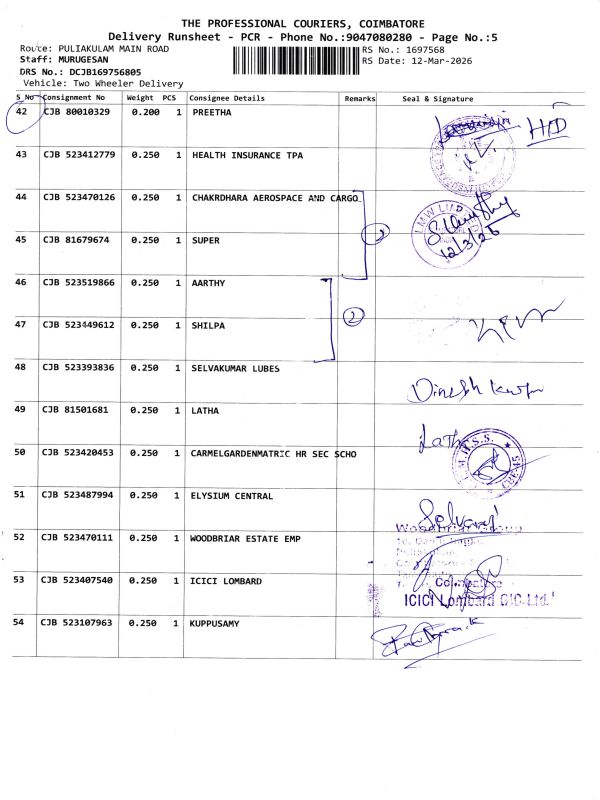 THE PROFESSIONAL COURIERS, COIMBATORE
Delivery Runsheet - PCR - Phone No.:9047080280 - Page No.:5
Route: PULIAKULAM MAIN ROAD
RS No.: 1697568
Staff: MURUGESAN
RS Date: 12-Mar-2026
DRS No.: DCJB169756805
Vehicle: Two Wheeler Delivery
S No Consignment No Weight PCS Consignee Details Remarks Seal & Signature
42 CJB 80010329 0.200 1 PREETHA
43 CJB 523412779 0.250 1 HEALTH INSURANCE TPA
44 CJB 523470126 0.250 1 CHAKRDHARA AEROSPACE AND CARGO
LMW
12/3/26
45 CJB 81679674 0.250 1 SUPER
46 CJB 523519866 0.250 1 AARTHY
2
47 CJB 523449612 0.250 1 SHILPA
48 CJB 523393836 0.250 1 SELVAKUMAR LUBES
Dinesh
49 CJB 81501681 0.250 1 LATHA
Latha
50 CJB 523420453 0.250 1 CARMELGARDENMATRIC HR SEC SCHO
51 CJB 523487994 0.250 1 ELYSIUM CENTRAL
Selvaraj
52 CJB 523470111 0.250 1 WOODBRIAR ESTATE EMP
Woodbriar Group
53 CJB 523407540 0.250 1 ICICI LOMBARD
Coimbatore
ICICI Lombard GIC Ltd.
54 CJB 523107963 0.250 1 KUPPUSAMY